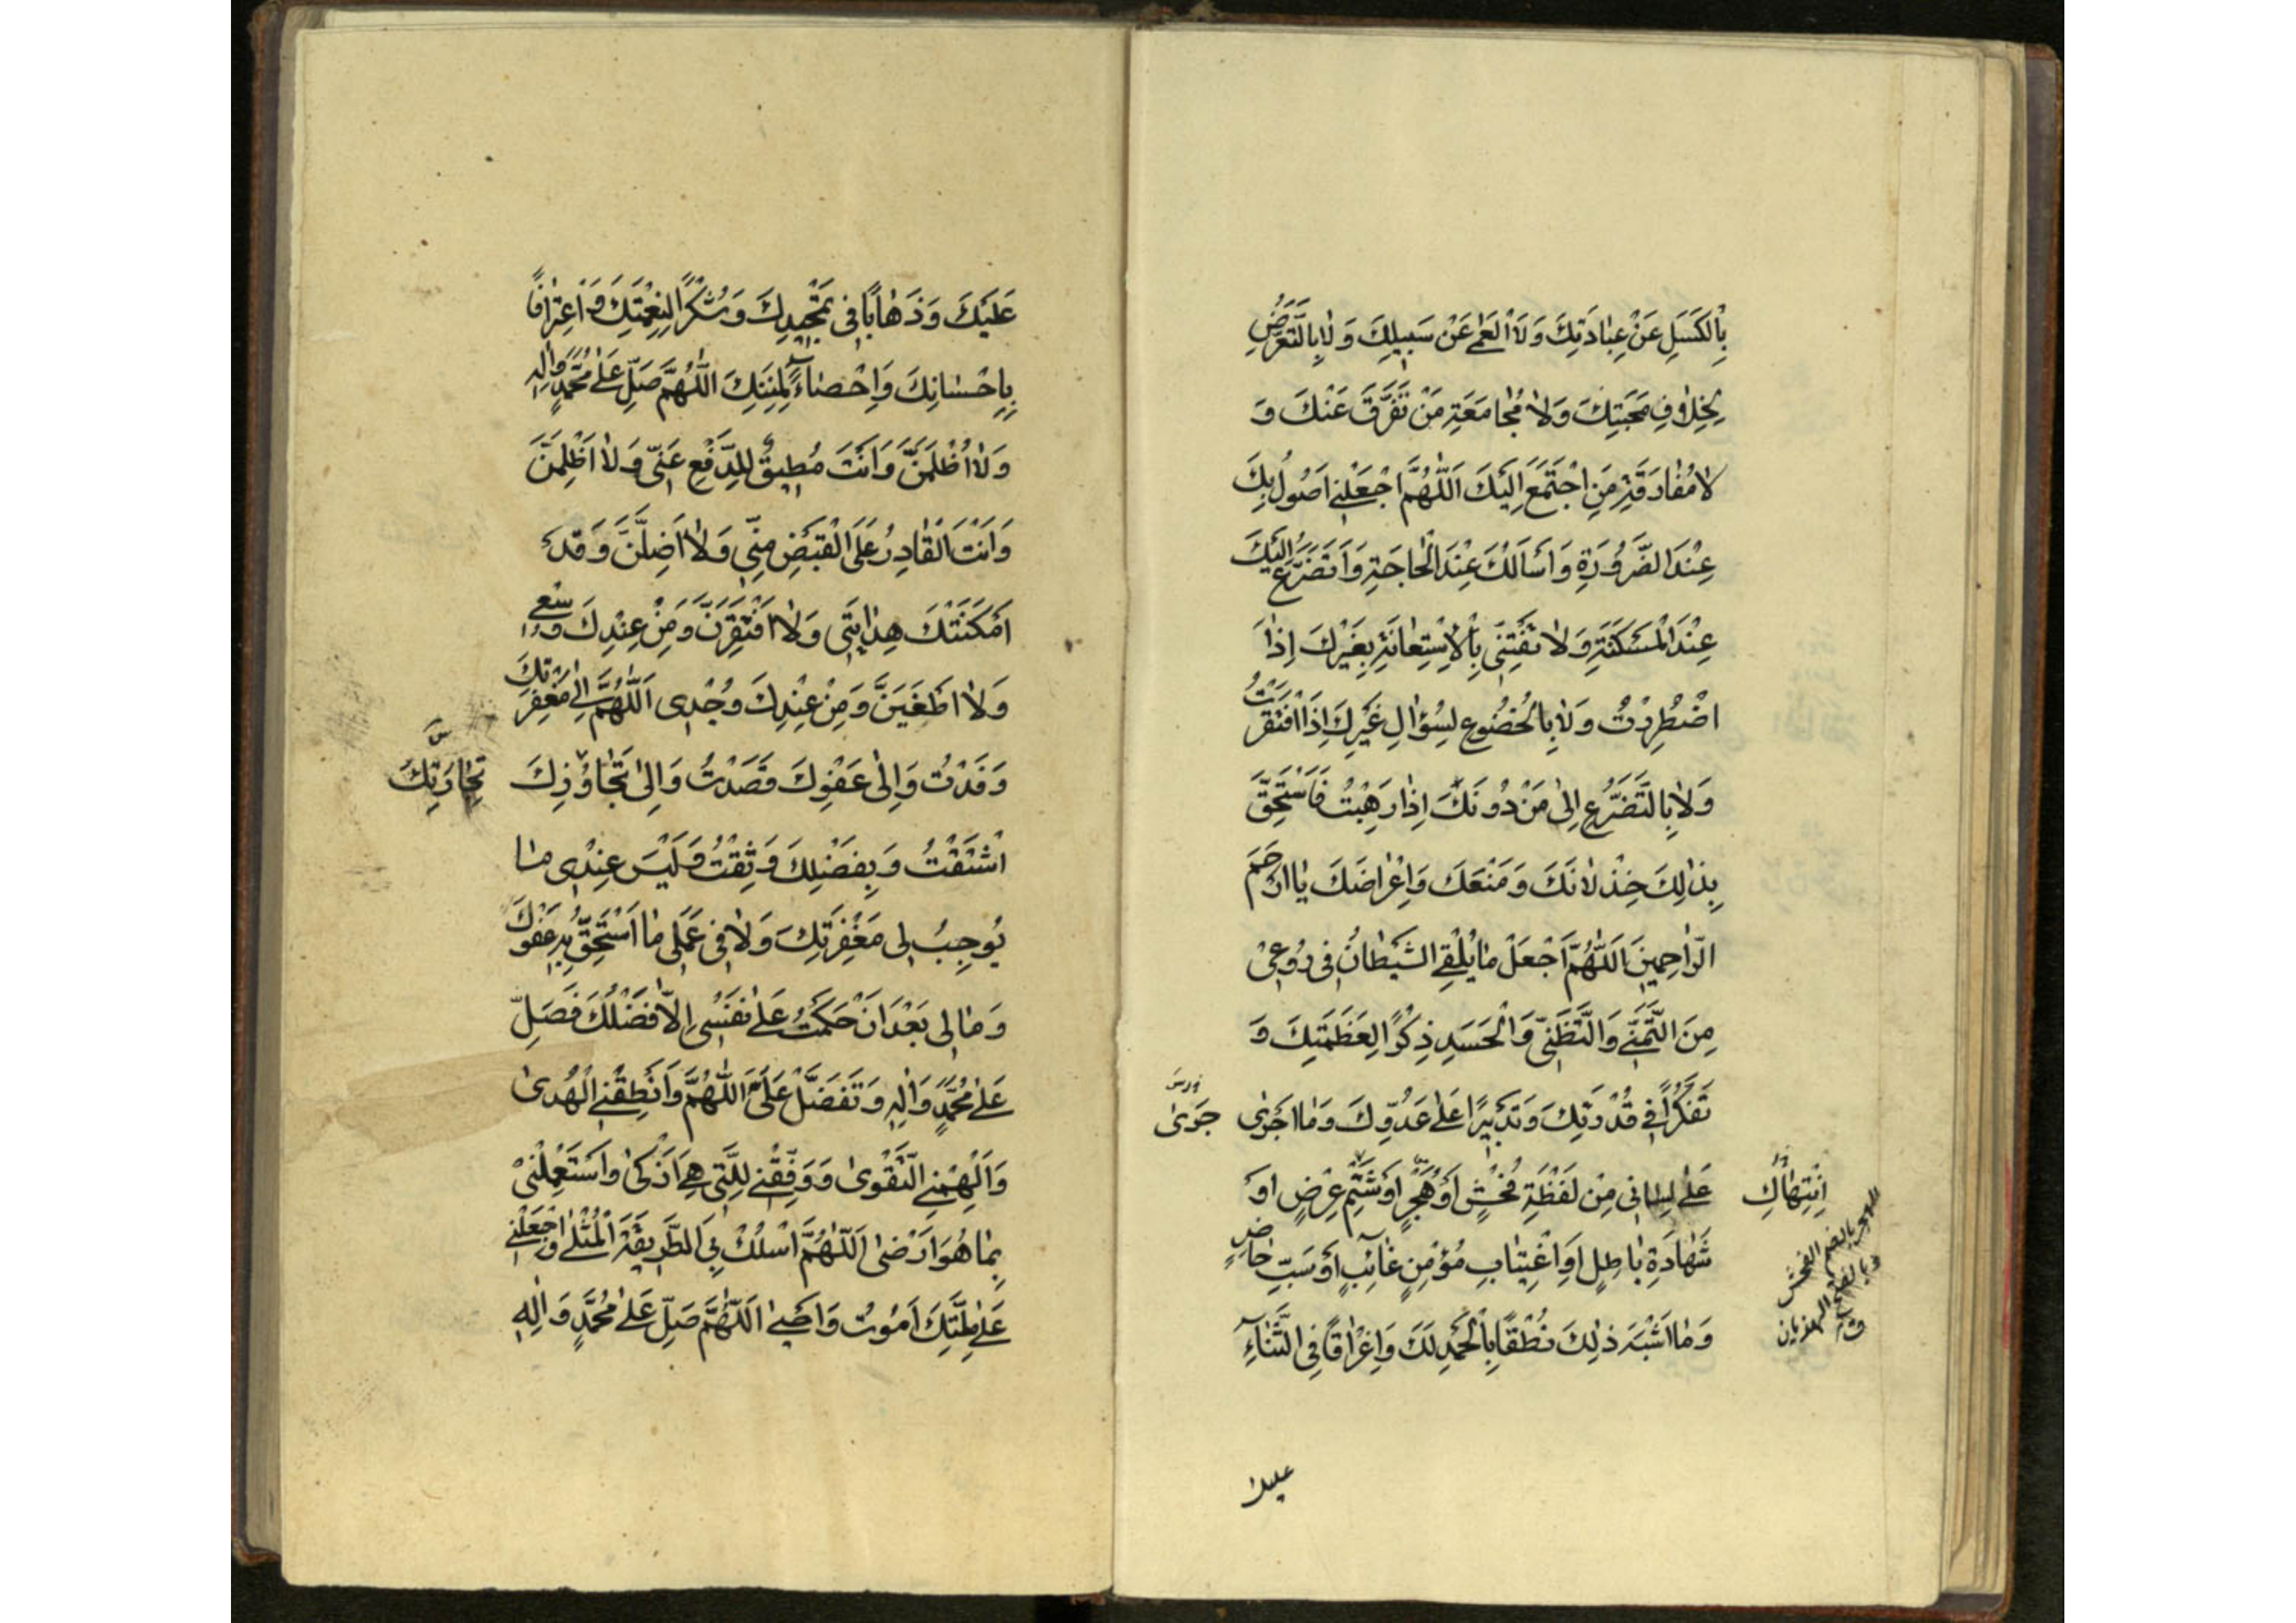 بِالْكَسَلِ عَنْ عِبَادَتِكَ وَلَا الْعَمٰى عَنْ سَبِيلِكَ وَلَا بِالتَّعَرُّضِ
لِخِلَافِ مَحَبَّتِكَ وَلَا مُجَامَعَةِ مَنْ تَفَرَّقَ عَنْكَ وَ
لَا مُفَارَقَةِ مَنِ اجْتَمَعَ اِلَيْكَ اَللّٰهُمَّ اجْعَلْنِي اَصُولُ بِكَ
عِنْدَ الضَّرُورَةِ وَاَسْاَلُكَ عِنْدَ الْحَاجَةِ وَاَتَضَرَّعُ اِلَيْكَ
عِنْدَ الْمَسْكَنَةِ وَلَا تَفْتِنِّي بِالْاِسْتِعَانَةِ بِغَيْرِكَ اِذَا
اضْطُرِرْتُ وَلَا بِالْخُضُوعِ لِسُؤَالِ غَيْرِكَ اِذَا افْتَقَرْتُ
وَلَا بِالتَّضَرُّعِ اِلٰى مَنْ دُونَكَ اِذَا رَهِبْتُ فَاَسْتَحِقَّ
بِذٰلِكَ خِذْلَانَكَ وَمَنْعَكَ وَاِعْرَاضَكَ يَا اَرْحَمَ
الرَّاحِمِينَ اَللّٰهُمَّ اجْعَلْ مَا يُلْقِي الشَّيْطَانُ فِي رُوعِي
مِنَ التَّمَنِّي وَالتَّظَنِّي وَالْحَسَدِ ذِكْرًا لِعَظَمَتِكَ وَ
تَفَكُّرًا فِي قُدْرَتِكَ وَتَدْبِيرًا عَلٰى عَدُوِّكَ وَمَا اَجْرٰى
جَرٰى
عَلٰى لِسَانِي مِنْ لَفْظَةِ فُحْشٍ اَوْ هُجْرٍ اَوْ شَتْمِ عِرْضٍ اَوْ
انْتِهَاكِ
شَهَادَةِ بَاطِلٍ اَوِ اغْتِيَابِ مُؤْمِنٍ غَائِبٍ اَوْ سَبِّ حَاضِرٍ
الهجر بالضم الفحش
وبالفتح الهذيان
ق
وَمَا اَشْبَهَ ذٰلِكَ نُطْقًا بِالْحَمْدِ لَكَ وَاِغْرَاقًا فِي الثَّنَاءِ
عليك
عَلَيْكَ وَذَهَابًا فِي تَمْجِيدِكَ وَشُكْرًا لِنِعْمَتِكَ وَاعْتِرَافًا
بِاِحْسَانِكَ وَاِحْصَاءً لِمِنَنِكَ اَللّٰهُمَّ صَلِّ عَلٰى مُحَمَّدٍ وَاٰلِهِ
وَلَا اُظْلَمَنَّ وَاَنْتَ مُطِيقٌ لِلدَّفْعِ عَنِّي وَلَا اَظْلِمَنَّ
وَاَنْتَ الْقَادِرُ عَلَى الْقَبْضِ مِنِّي وَلَا اَضِلَّنَّ وَقَدْ
اَمْكَنَتْكَ هِدَايَتِي وَلَا اَفْتَقِرَنَّ وَمِنْ عِنْدِكَ وُسْعِي
وَلَا اَطْغَيَنَّ وَمِنْ عِنْدِكَ وُجْدِي اَللّٰهُمَّ اِلٰى مَغْفِرَتِكَ
وَفَدْتُ وَاِلٰى عَفْوِكَ قَصَدْتُ وَاِلٰى تَجَاوُزِكَ
اشْتَقْتُ وَبِفَضْلِكَ وَثِقْتُ وَلَيْسَ عِنْدِي مَا
يُوجِبُ لِي مَغْفِرَتَكَ وَلَا فِي عَمَلِي مَا اَسْتَحِقُّ بِهِ عَفْوَكَ
وَمَا لِي بَعْدَ اَنْ حَكَمْتُ عَلٰى نَفْسِي اِلَّا فَضْلُكَ فَصَلِّ
عَلٰى مُحَمَّدٍ وَاٰلِهِ وَتَفَضَّلْ عَلَيَّ اَللّٰهُمَّ وَاَنْطِقْنِي الْهُدٰى
وَاَلْهِمْنِي التَّقْوٰى وَوَفِّقْنِي لِلَّتِي هِيَ اَزْكٰى وَاسْتَعْمِلْنِي
بِمَا هُوَ اَرْضٰى اَللّٰهُمَّ اسْلُكْ بِيَ الطَّرِيقَةَ الْمُثْلٰى وَاجْعَلْنِي
عَلٰى مِلَّتِكَ اَمُوتُ وَاَحْيٰى اَللّٰهُمَّ صَلِّ عَلٰى مُحَمَّدٍ وَاٰلِهِ